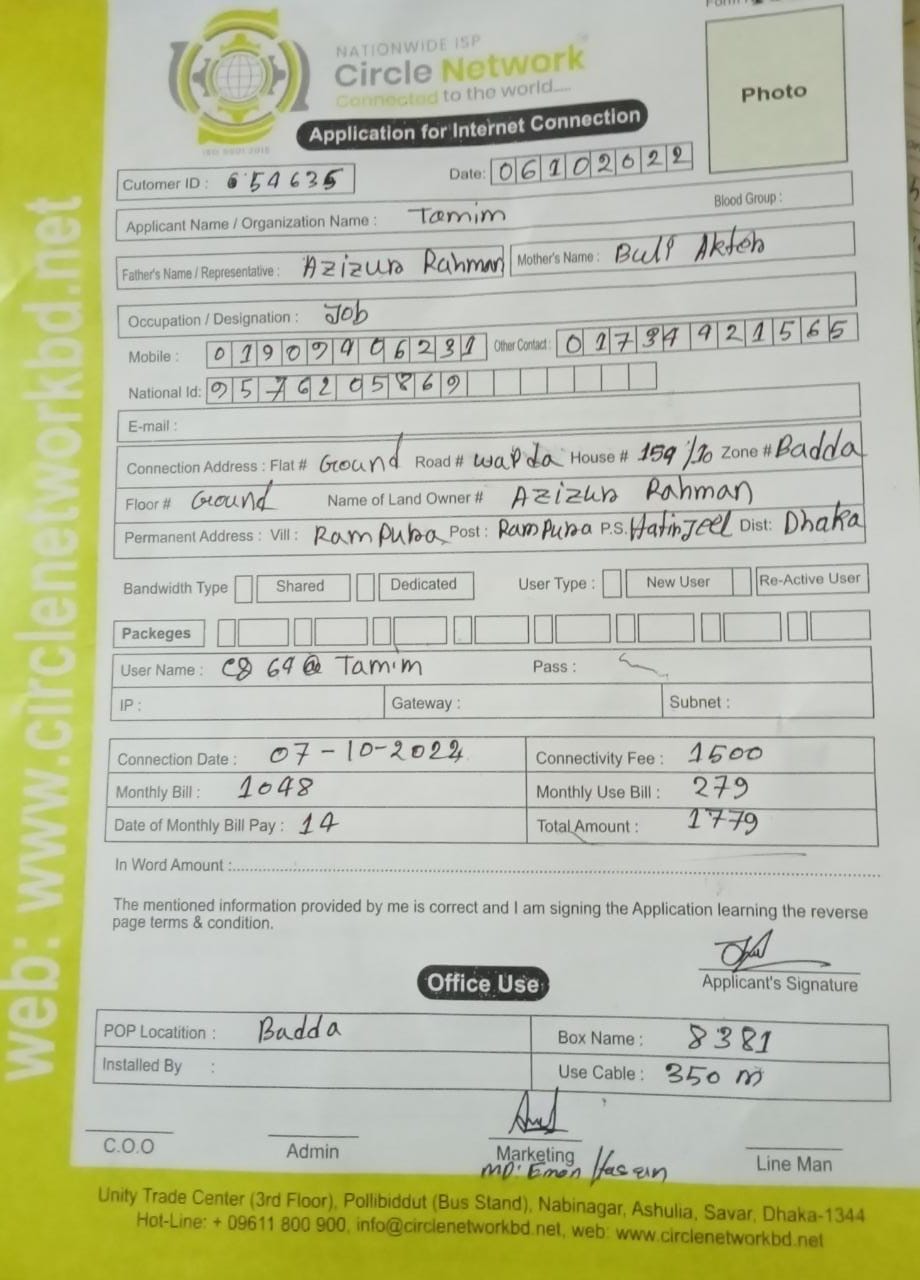 NATIONWIDE ISP
Circle Network
Connected to the world....
ISO 9001:2015
Application for Internet Connection
Photo
Cutomer ID : 654635
Date: 06102022
Applicant Name / Organization Name : Tamim
Blood Group :
Father's Name / Representative : Azizur Rahman Mother's Name : Buli Akter
Occupation / Designation : Job
Mobile : 01909406231 Other Contact : 01734921565
National Id: 9576205869
E-mail :
Connection Address : Flat # Ground Road # wapda House # 159/10 Zone # Badda
Floor # Ground Name of Land Owner # Azizur Rahman
Permanent Address : Vill : Rampura Post : Rampura P.S. Hatirjeel Dist: Dhaka
Bandwidth Type Shared Dedicated User Type : New User Re-Active User
Packeges
User Name : 64@Tamim Pass :
IP : Gateway : Subnet :
Connection Date : 07-10-2022 Connectivity Fee : 1500
Monthly Bill : 1048 Monthly Use Bill : 279
Date of Monthly Bill Pay : 14 Total Amount : 1779
In Word Amount :
The mentioned information provided by me is correct and I am signing the Application learning the reverse
page terms & condition.
Applicant's Signature
Office Use
POP Locatition : Badda Box Name : 8381
Installed By : Use Cable : 350 m
C.O.O Admin Marketing Line Man
MD: Emon Hasein
Unity Trade Center (3rd Floor), Pollibiddut (Bus Stand), Nabinagar, Ashulia, Savar, Dhaka-1344
Hot-Line: + 09611 800 900, info@circlenetworkbd.net, web: www.circlenetworkbd.net
web: www.circlenetworkbd.net